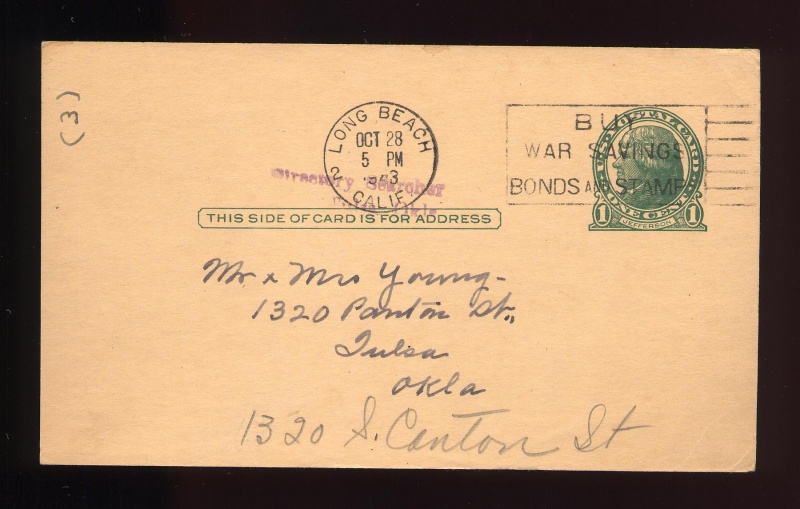 (3)
LONG BEACH
OCT 28
5 PM
1943
2
CALIF
BUY
WAR SAVINGS
BONDS AND STAMPS
U.S. POSTAL CARD
1 ONE CENT 1
JEFFERSON
Directory Searcher
Tulsa, Okla
THIS SIDE OF CARD IS FOR ADDRESS
Mr & Mrs Young-
1320 Panton St.,
Tulsa
Okla
1320 S. Canton St